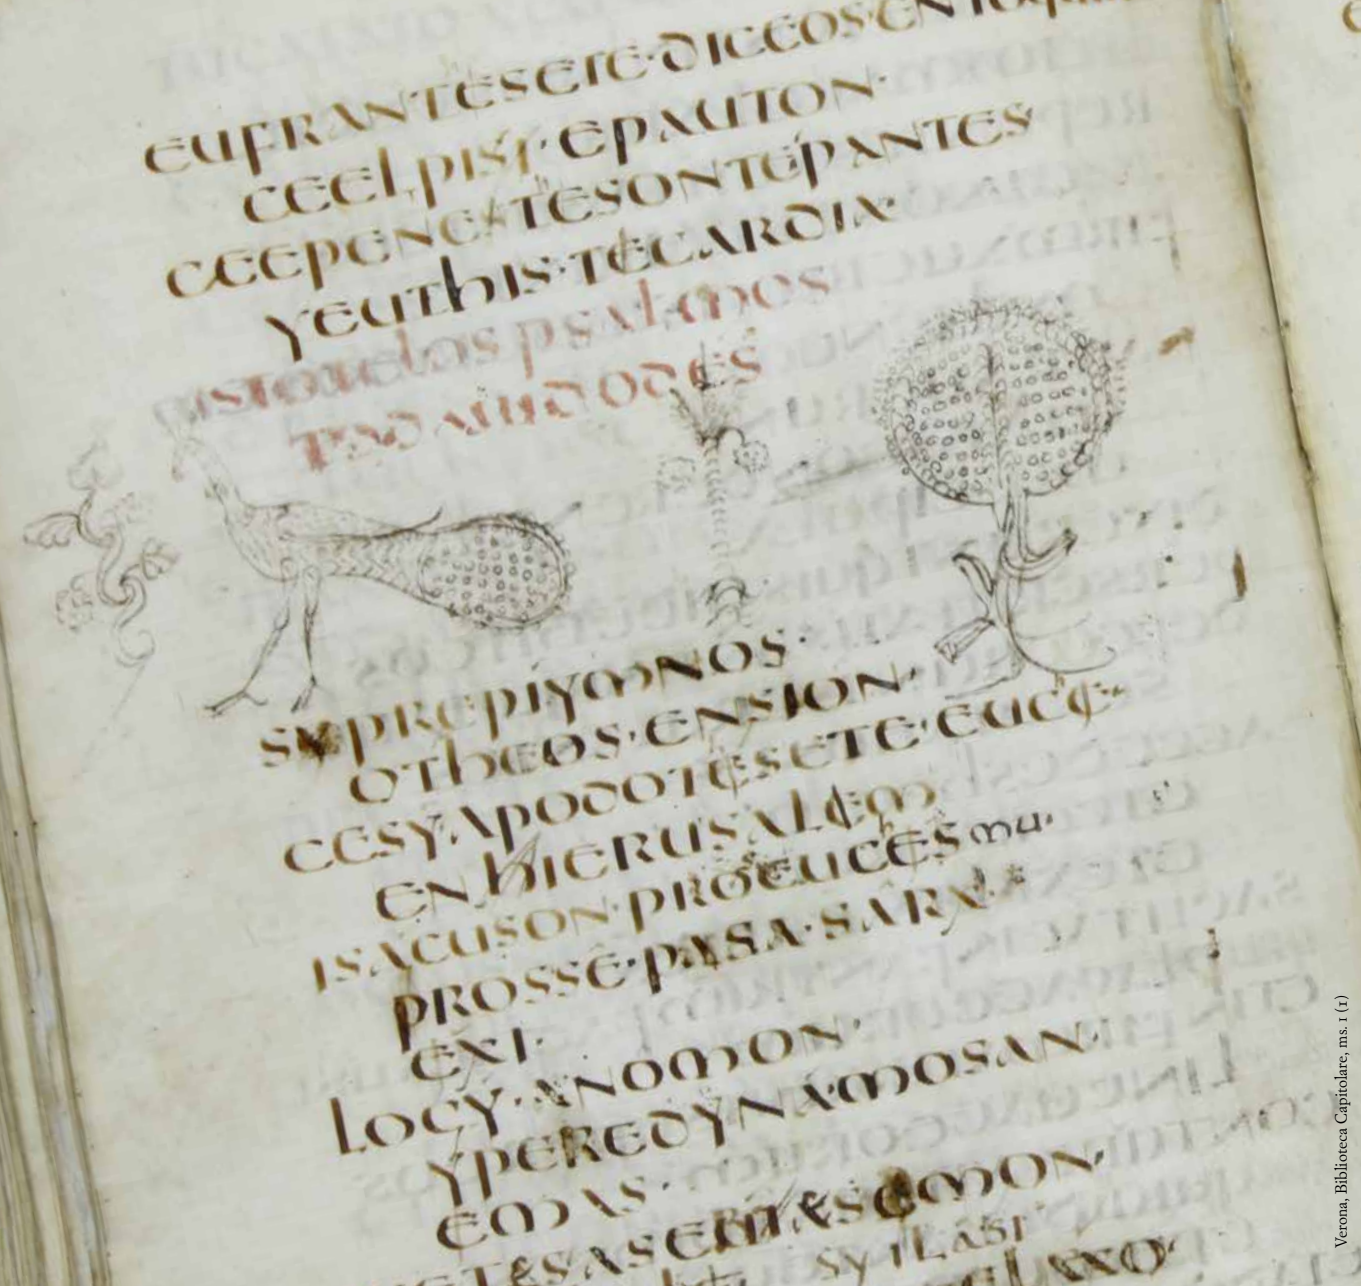 EUFRANTESETE·DICEOS·EN
CEELPISI·EPAUTON·
CEEPENETESONTEPANTES
YEUTHIS·TECARDIA·
psalmos
SYPREPIYMNOS·
OTHEOS·ENSION·
CESY·APODOTESETE·EUCE·
ENHIERUSALEM
ISACUSON·PROEUCESmu·
PROSSE·PASA·SARX·
EXI·
LOCY·ANOMON·
YPEREDYNAMOSAN·
EMAS·
Verona, Biblioteca Capitolare, ms. 1 (1)